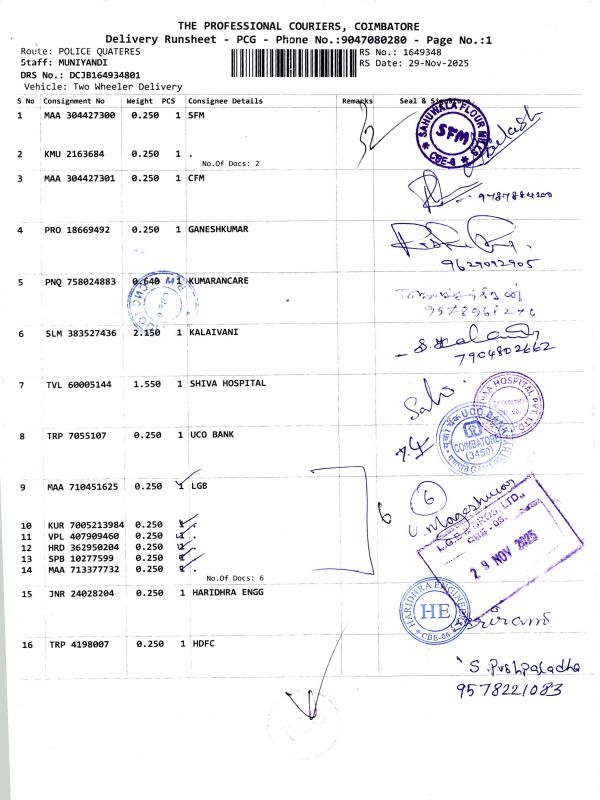 THE PROFESSIONAL COURIERS, COIMBATORE
Delivery Runsheet - PCG - Phone No.:9047080280 - Page No.:1
Route: POLICE QUATERES RS No.: 1649348
Staff: MUNIYANDI RS Date: 29-Nov-2025
DRS No.: DCJB164934801
Vehicle: Two Wheeler Delivery
S No Consignment No Weight PCS Consignee Details Remarks Seal & Signature
1 MAA 304427300 0.250 1 SFM
SAHUWALA FLOUR MILLS
SFM
CBE-8
2 KMU 2163684 0.250 1 .
No.Of Docs: 2
3 MAA 304427301 0.250 1 CFM
9787884200
4 PRO 18669492 0.250 1 GANESHKUMAR
9629092905
5 PNQ 758024883 0.640 1 KUMARANCARE
6 SLM 383527436 2.150 1 KALAIVANI
7904802662
7 TVL 60005144 1.550 1 SHIVA HOSPITAL
HOSPITAL PVT. LTD.
8 TRP 7055107 0.250 1 UCO BANK
UCO BANK
COIMBATORE
(3450)
9 MAA 710451625 0.250 1 LGB
6 6
U. Mageshwar
10 KUR 7005213984 0.250 .
11 VPL 407909460 0.250 .
12 HRD 362950204 0.250 .
13 SPB 10277599 0.250 .
14 MAA 713377732 0.250 .
No.Of Docs: 6
L.G.B & BROS. LTD.,
CBE - 06.
29 NOV 2025
15 JNR 24028204 0.250 1 HARIDHRA ENGG
HARIDHRA ENGINEERING
HE
CBE-06
Sriram
16 TRP 4198007 0.250 1 HDFC
S. Pushpaladha
9578221083